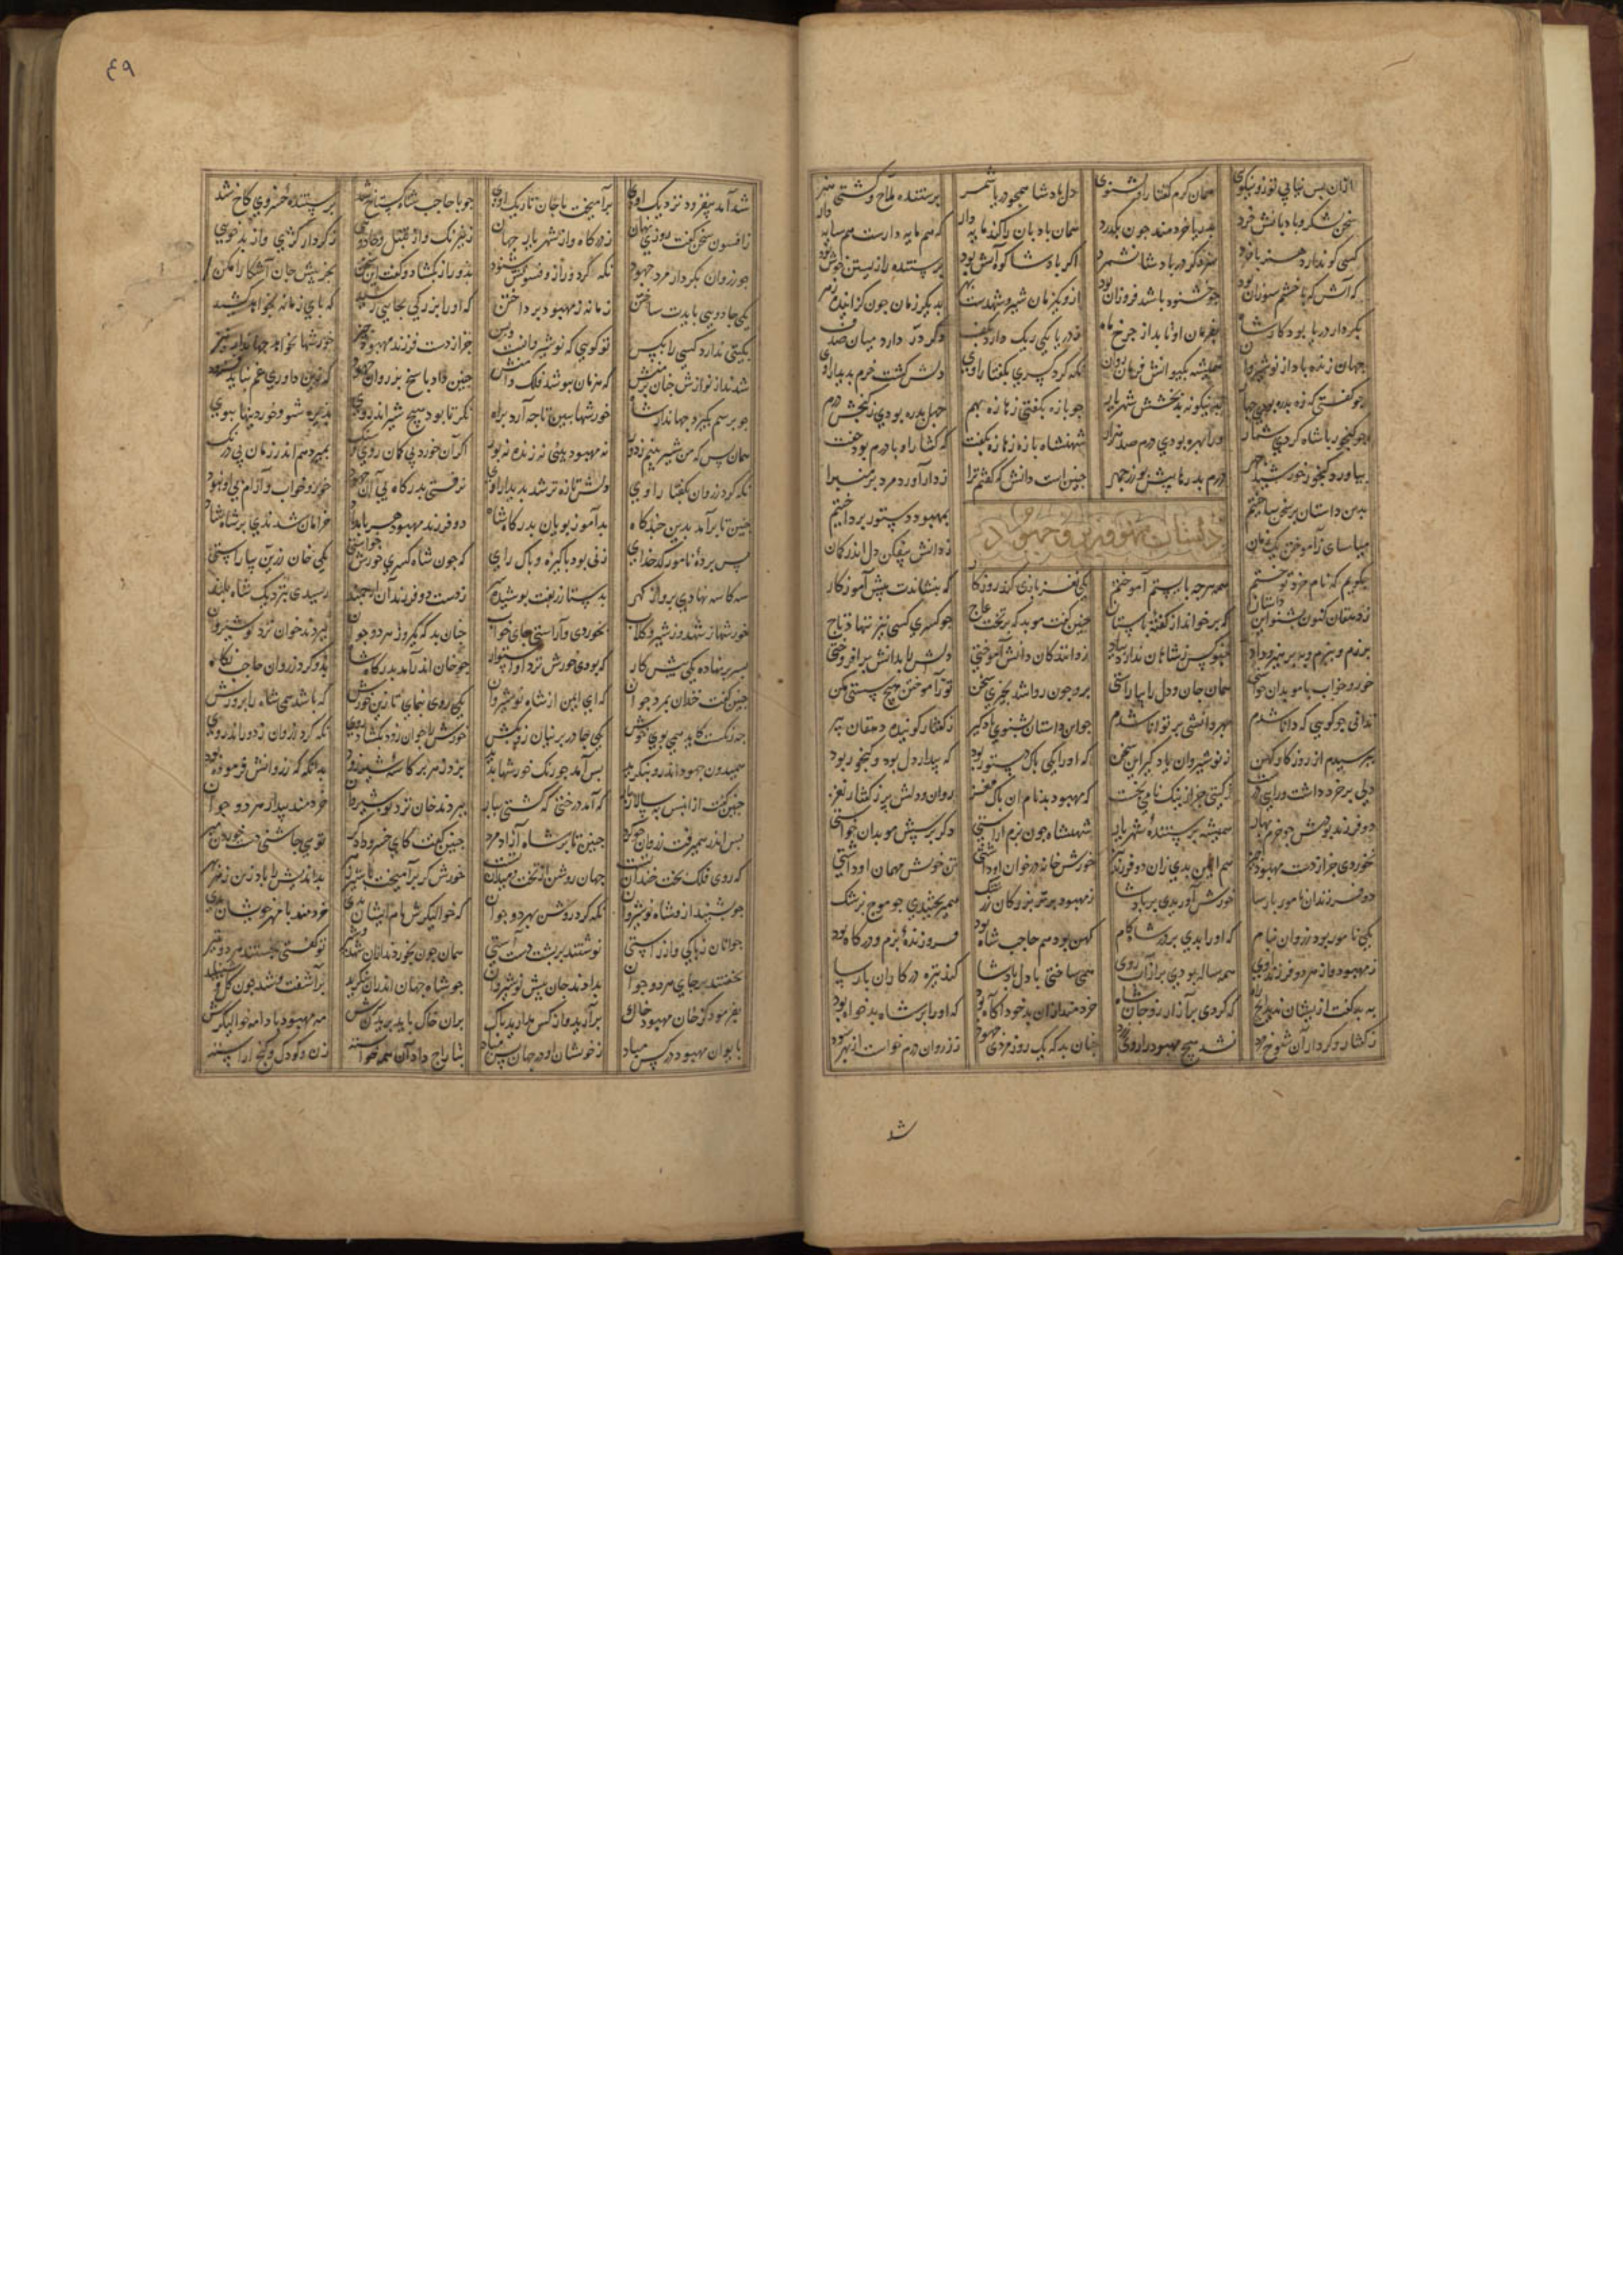 ازان پس نیابی تو زو نیکوی همان کرم گفتار او بشنوی دل بادشا همجو دریا شمر برستنده ملاح و کشتی هنر
سخن لنگر و بادبانش خرد بدریا خردمند جون بکذرد همان بادبان را کند مایه دار که هم مایه دارست هم سایه دار
کسی کو ندارد هنر با خرد سزد کر در بادشا نشمرد اکر بادشا کوه آتش بود برستنده را زیستن خوش بود
که آتش که با خشم سوزان بود جو خشنود باشد فروزان بود ازو یکزمان شیر و شهدست بهر بدیکر زمان جون کزاینده زهر
بکردار دریا بود کار شاه بفرمان او تابد از جرخ ماه ز دریا یکی ریک دارد بکف دکر در دارد میان صدف
جهان زنده باد از نوشیروان همیشه بکیهانش فرمان روان نکه کرد کسری بکفتار اوی دلش کشت خرم بدیدار اوی
جو کفتی که زه بدره بودی جهار بدینکونه بد بخشش شهریار جو با زه بکفتی زهازه بهم جهل بدره بودی ز کنجش درم
جو کنجور با شاه کردی شمار ورا بهره بودی درم صد هزار شهنشاه با زه زهازه بکفت که کفتار او با درم بود جفت
بیاورد کنجور خورشید جهر درم بدرها پیش بوزرجمهر جنین است دانش که کفتم ترا
بدین داستان بر سخن ساختم بمهبود دستور برداختم
داستان مهبود
میاسای ز آموختن یک زمان ز دانش میفکن دل اندر کمان
بکویم که نام خرد توختم همه هرجه بایستم آموختم یکی نغز بازی کند روزکار که بنشاندت پیش آموزکار
ز دهقان کنون بشنو این داستان که برخواند از کفته باستان جنین کفت موبد که بر تخت عاج جو کسری کسی نیز ننهاد تاج
ببزم و برزم و بپرهیز و داد جنو کس ز شاهان ندارد بیاد ز دانندکان دانش آموختی دلش را بدانش برافروختی
خور و خواب با موبدان خواستی همان جان و دل را بیاراستی برو جون روا شد بخیری سخن تو ز آموختن هیج سستی مکن
ندانی جو کویی که دانا شدم بهر دانشی بر توانا شدم جو این داستان بشنوی یاد کیر ز کفتار کوینده دهقان پیر
ببرسیدم از روزکار کهن ز نوشیروان یاد کیر این سخن که او را یکی باک دستور بود که بیدار دل بود و کنجور بود
دلی بر خرد داشت و رای درست ز کیتی جز از نیک نامی نجست که مهبود بد نام آن باک مغز روان و دلش پر ز کفتار نغز
دو فرزند بودش جو خرم بهار همیشه برستنده شهریار شهنشاه جون بزم آراستی دکر پرسش موبدان خواستی
نخوردی جز از دست مهبود هم ایمن بدی زان دو فرزند خورش خانه در خوان او داشتی تن خویش مهمان او داشتی
دو فرزندان نامور بارسا خورش آوریدی بر بادشا ز مهبود هر بزرکان رشک همی ریختندی جو موج بزشک
یکی نامور بود زروان بنام که او را بدی بر در شاه کام کهن بود هم حاجب شاه بود فروزنده بزم و درکاه بود
ز مهبود وز هر دو فرزند اوی همه ساله بودی بر از آب روی همی ساختی با دل بادشا کند تیزه در کار آن بارسا
ببد کفت ازیشان ندید ایج راه که کردی برآزار زو جان شاه خردمند ازان بد خود آکاه بود که او را بر شاه بدخواه بود
ز کفتار و کردار آن شوخ مرد نشد هیج مهبود را روی زرد جنان بد که یک روز مردی جهود ز زروان درم خواست از بهر سود
شد
۴۹
شد آمد بیفزود نزدیک اوی برآمیخت با جان تاریک اوی جو با حاجب شاه کستاخ شد برستنده خسروی کاخ شد
ز افسون سخن کفت روزی نهان ز درکاه وز شهریار جهان ز نیرنک وز تنبل و جادوی ز کردار کژی وز بدخوی
جو زروان بکردار مرد جهود نکه کرد و راز و فسونش شنود بدو راز بکشاد و کفت این سخن بجز پیش جان آشکارا مکن
یکی جادویی بایدت ساختن زمانه ز مهبود برداختن که او را بزرکی بجایی رسید که بای زمانه بخواهد کشید
بکیتی ندارد کسی را بکس تو کویی که نوشیروانست و بس جز از دست فرزند مهبود جیز خورشها نخواهد جهاندار نیز
شدند از نوازش جنان برمنش که هزمان ببوسد فلک دامنش جنین داد پاسخ بزروان جهود کزین داوری غم نباید فزود
جو برسم بکیرد جهاندار شاه خورشها ببین تا جه آرد براه نکر تا بود هیج شیر اندروی پذیره شو و خوردنیها ببوی
همان بس که من شیر بینم ز دور نه مهبود بینی نه زنده نه بور اکر آن خورد بی کمان روی و سنک بمیرد هم اندر زمان بی درنک
نکه کرد زروان بکفتار اوی دلش تازه تر شد بدیدار اوی نرفتی بدرکاه بی آن جهود خور و خواب و آرام بی او نبود
جنین تا برآمد بدین جندکاه بدآموز بویان بدرکاه شاه دو فرزند مهبود هر بامداد خرامان شدندی بر شاه شاد
پس برده نامور کدخدای زنی بود باکیزه و باک رای که جون شاه کسری خورش خواستی یکی خوان زرین بیاراستی
سه کاسه نهادی برو از کهر بدستار زربفت بوشیده سر ز دست دو فرزند آن ارجمند رسیدی بنزدیک شاه بلند
خورشها ز شهد و ز شیر و کلاب بخوردی و آراستی جای خواب جنان بد که یکروز هر دو جوان ببردند خوان نزد نوشیروان
بسر برنهاده یکی پیش کار که بودی خورش نزد او استوار جو خوان اندر آمد بدرکاه شاه بدو کرد زروان حاجب نکاه
جنین کفت خندان بمرد جوان که ای ایمن از شاه نوشیروان یکی روی بنمای تا زین خورش که باشد همی شاه را برورش
جه رنکست کاید همی بوی خوش یکی جادر برنیان زو بکش خورش را جوان زود بکشاد روی نکه کرد زروان ز دور اندروی
همیدون جهود اندرو بنکرید بس آمد جو رنک خورشها بدید بدانکه که زروانش فرموده بود
جنین کفت ازان پس بسالار بار که آمد درختی که کشتی ببار ببردند خوان نزد نوشیروان خردمند بیدار هر دو جوان
بس اندر همی رفت زروان جو کرد جنین تا بر شاه آزاد مرد جنین کفت کای خسرو دادکر تو بی جاشنی دست خوردن مبر
که روی فلک بخت خندان تست جهان روشن از تخت و میدان تست خورش کر برآمیخت با شیر زهر بداندیش را باد زین زهر بهر
جو بشنید ازو شاه نوشیروان نکه کرد روشن بهر دو جوان که خوالیکرش مام ایشان بدی خردمند با مهر خویشان بدی
جوانان ز باکی وز راستی نوشتند بر بشت دست آستی همان جون بخوردند ازان شهد و شیر تو کفتی بخستند هر دو بتیر
بخفتند بر جای هر دو جوان بدادند جان پیش نوشیروان جو شاه جهان اندران بنکرید برآشفت و شد جون کل شنبلید
بفرمود کز خان مهبود خاک برآرید و از کس مدارید باک بران خاک باید بریدن سرش مه مهبود بادا مه خوالیکرش
بایوان مهبود در کس مباد ز خویشان او در جهان بس مباد بتاراج داد آن همه خواسته زن و کودک و کنج آراسته